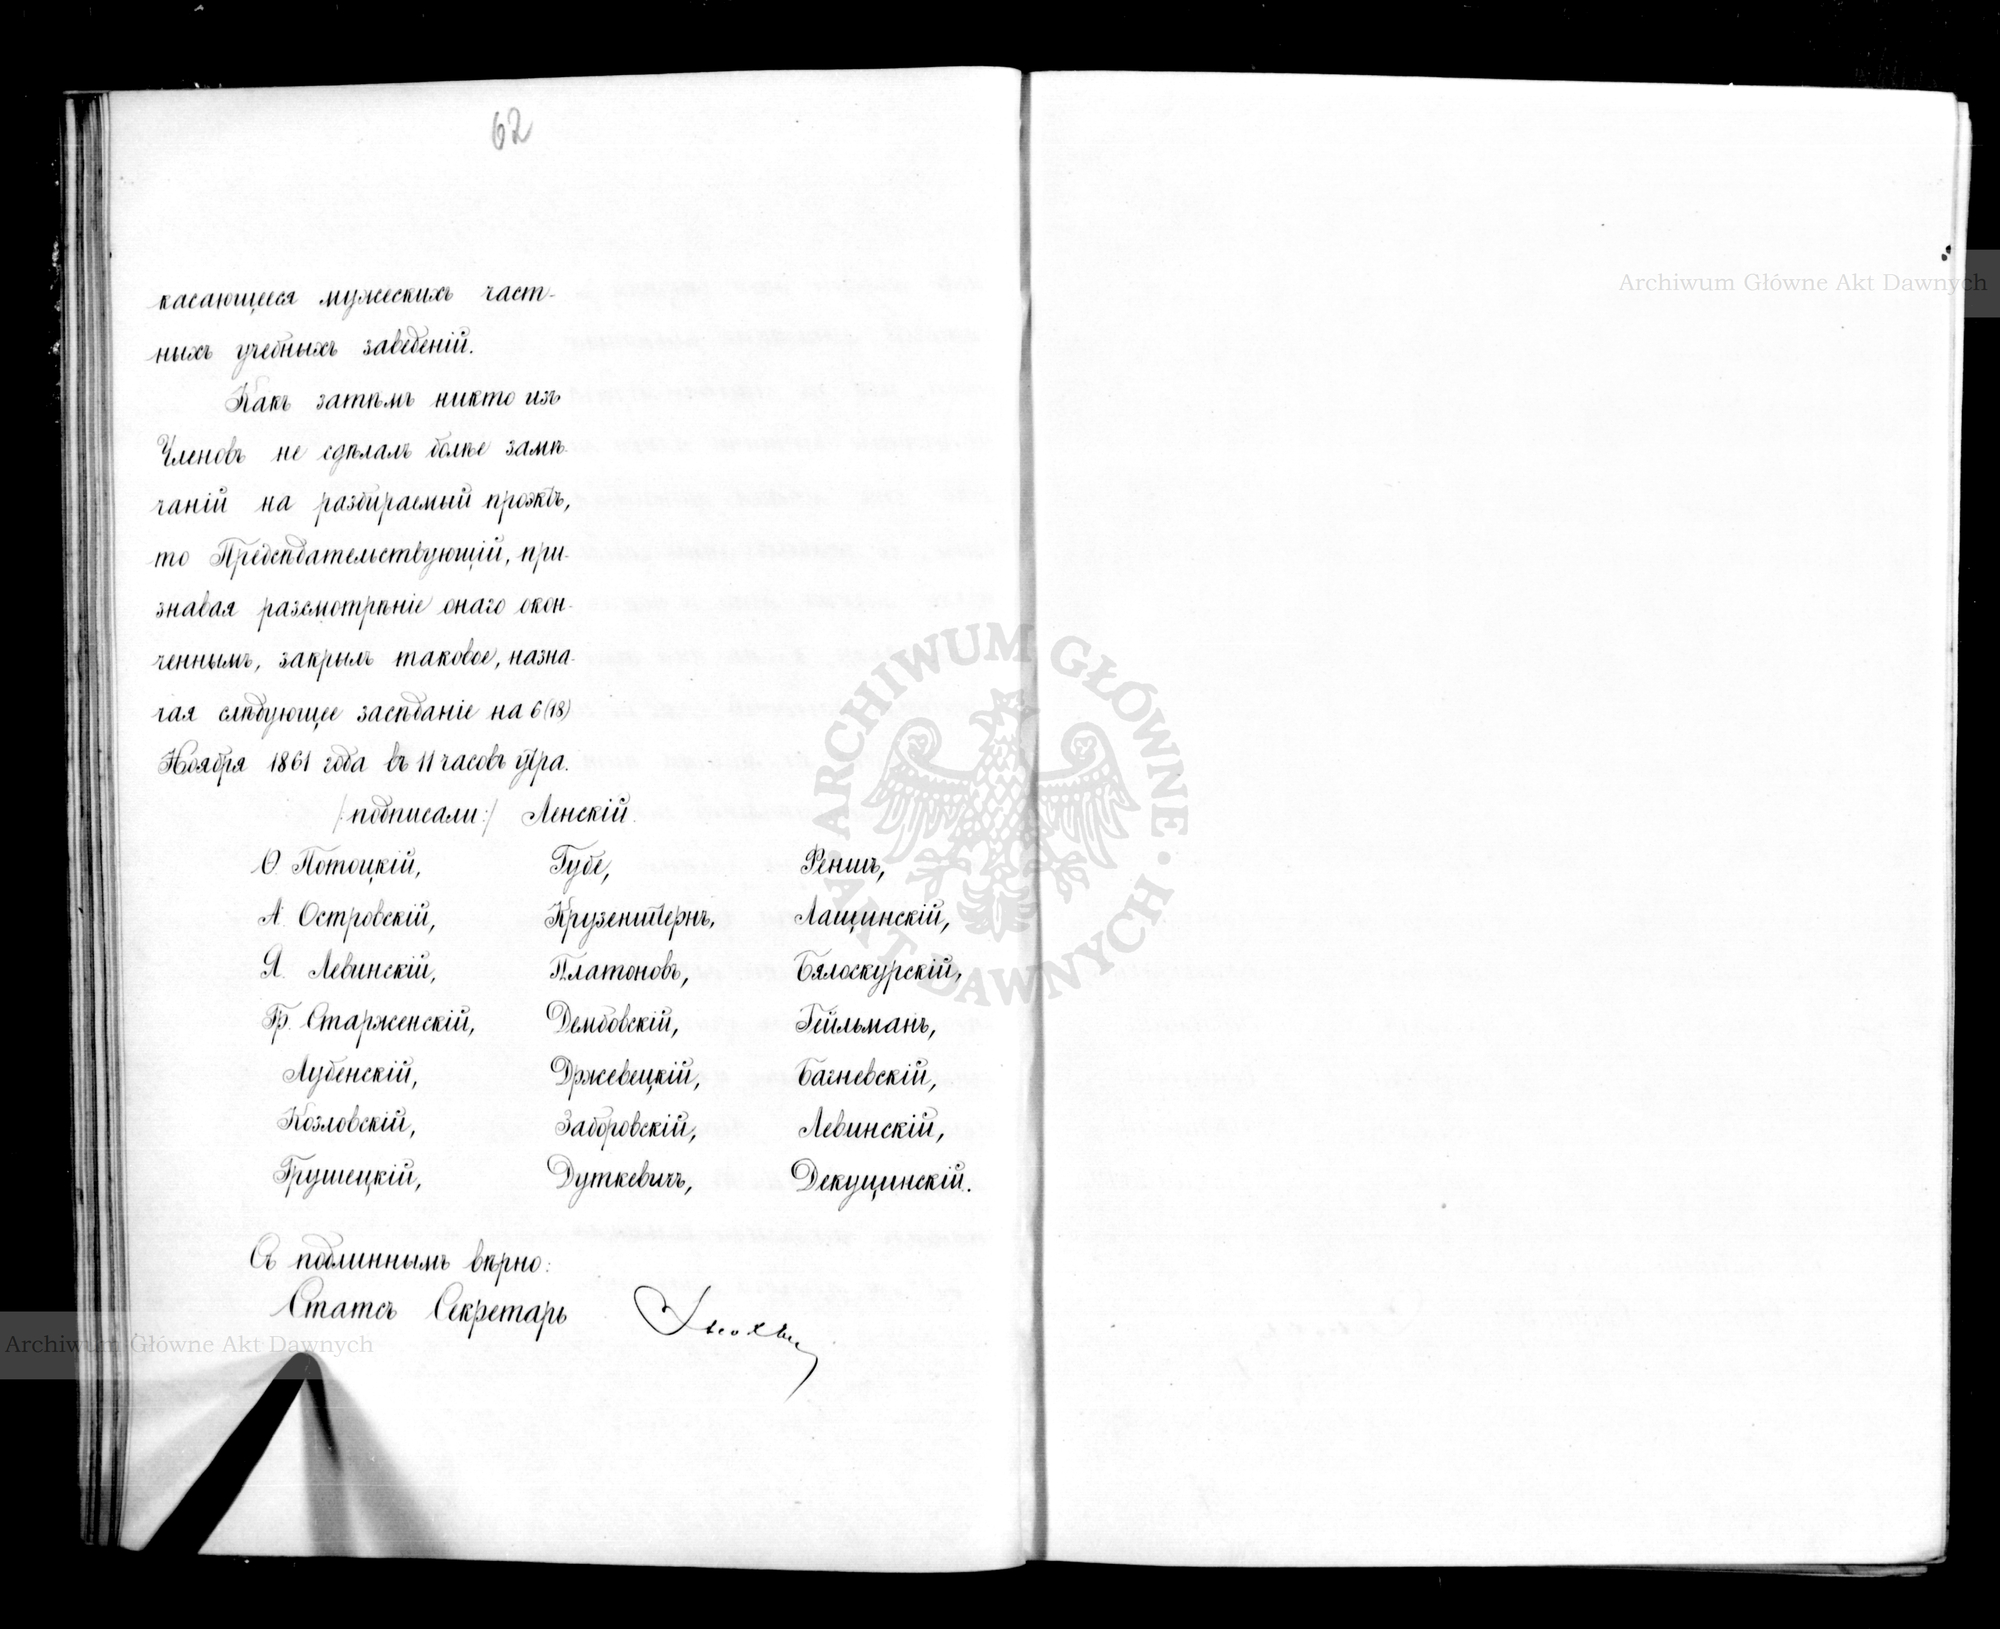 62
касающееся мужескихъ част-
ныхъ учебныхъ заведеній.
Какъ затѣмъ никто изъ
Членовъ не сдѣлалъ болѣе замѣ-
чаній на разбираемый проэктъ,
то Предсѣдательствующій, при-
знавая разсмотрѣніе онаго окон-
ченнымъ, закрылъ таковое, назна-
чая слѣдующее засѣданіе на 6 (18)
Ноября 1861 года въ 11 часовъ утра.
/:подписали:/ Ленскій.
Ѳ. Потоцкій, Губе, Реншъ,
А. Островскій, Крузенштернъ, Лащинскій,
Я. Левинскій, Платоновъ, Бялоскурскій,
Гр. Старженскій, Дембовскій, Гейльманъ,
Лубенскій, Држевецкій, Багневскій,
Козловскій, Заборовскій, Левинскій,
Грушецкій, Дуткевичъ, Декуцинскій.
Съ подлиннымъ вѣрно:
Статсъ Секретарь
Archiwum Główne Akt Dawnych
Archiwum Główne Akt Dawnych
ARCHIWUM GŁÓWNE
AKT DAWNYCH